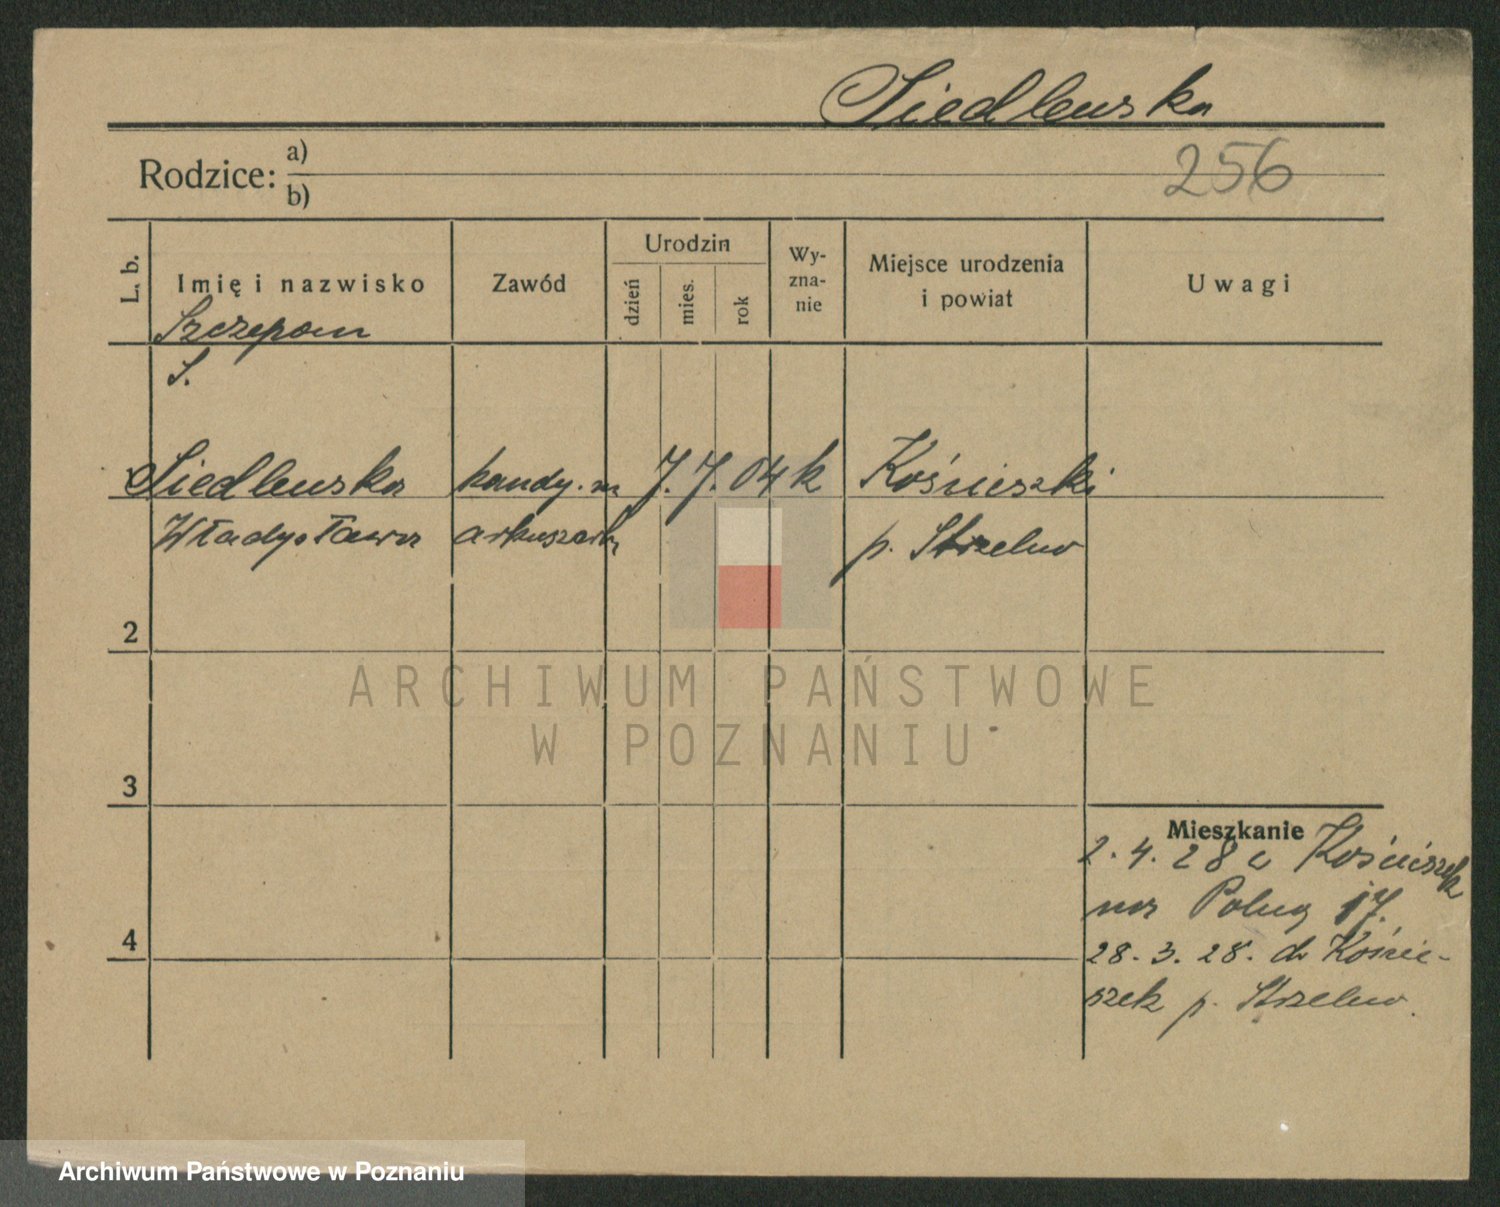 Siedlewska
Rodzice: a)
b)
256
L. b.
Imię i nazwisko
Zawód
Urodzin
dzień
mies.
rok
Wy-
zna-
nie
Miejsce urodzenia
i powiat
Uwagi
Szczepan
S.
Siedlewska
kandy. na
7. 7. 04 k
Kościeszki
Władysława
p. Strzelno
2
3
4
Mieszkanie
2. 4. 28 z Kościeszek
28. 3. 28. do Koście-
szek p. Strzelno.
ARCHIWUM PAŃSTWOWE
W POZNANIU
Archiwum Państwowe w Poznaniu